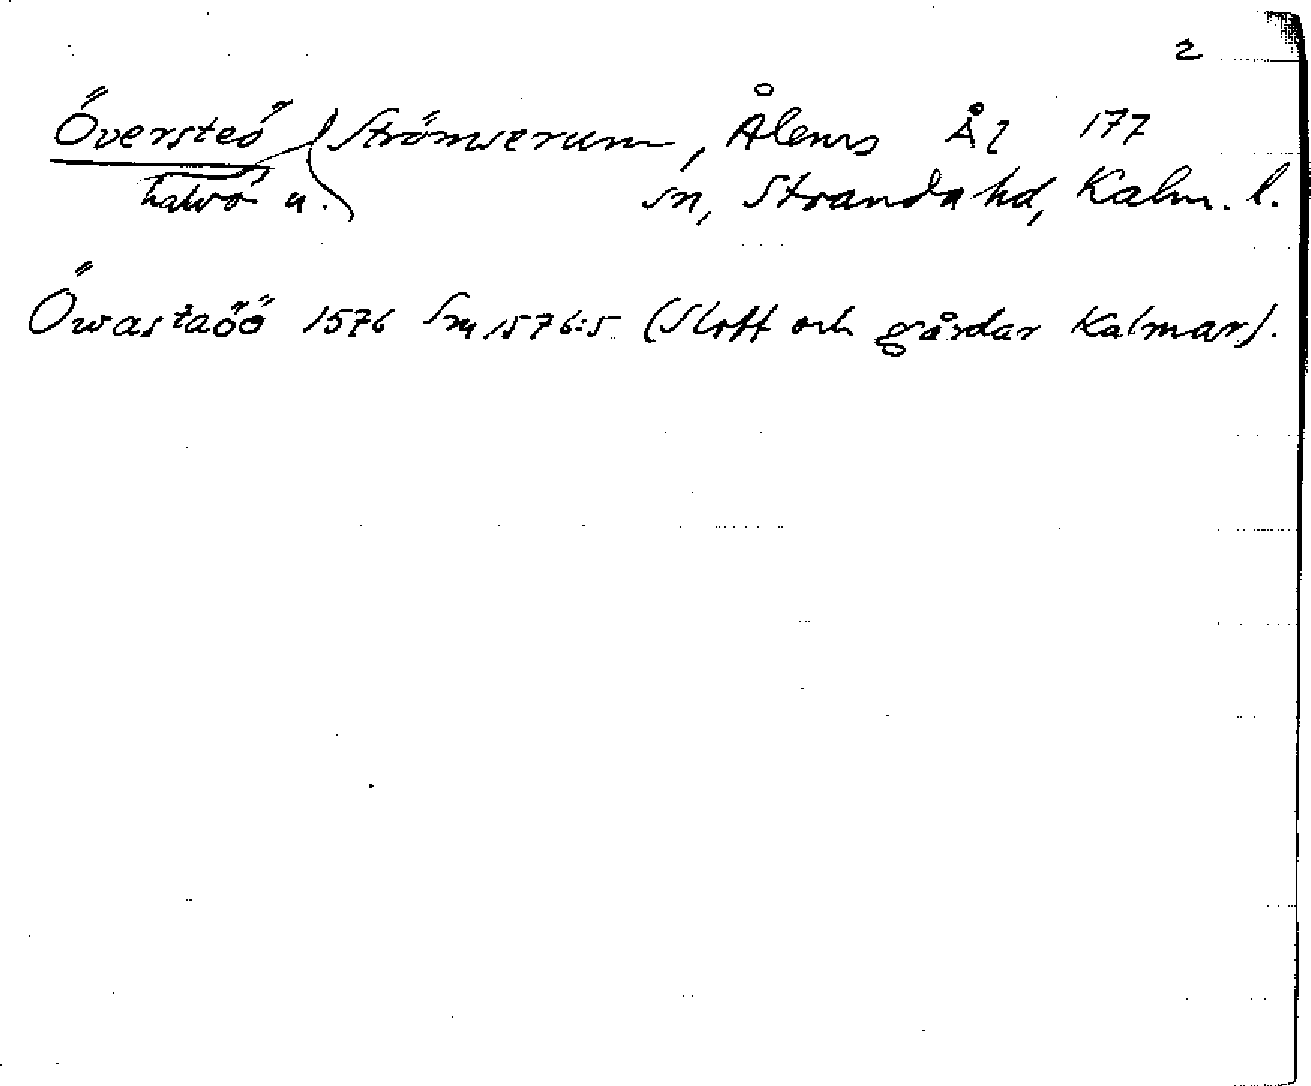 2
Översteö Strömserum, Ålems Ål 177
halvö u. sn, Stranda hd, Kalm. l.
Öwastaöö 1576 Sm 1576:5 (Slott och gårdar Kalmar).